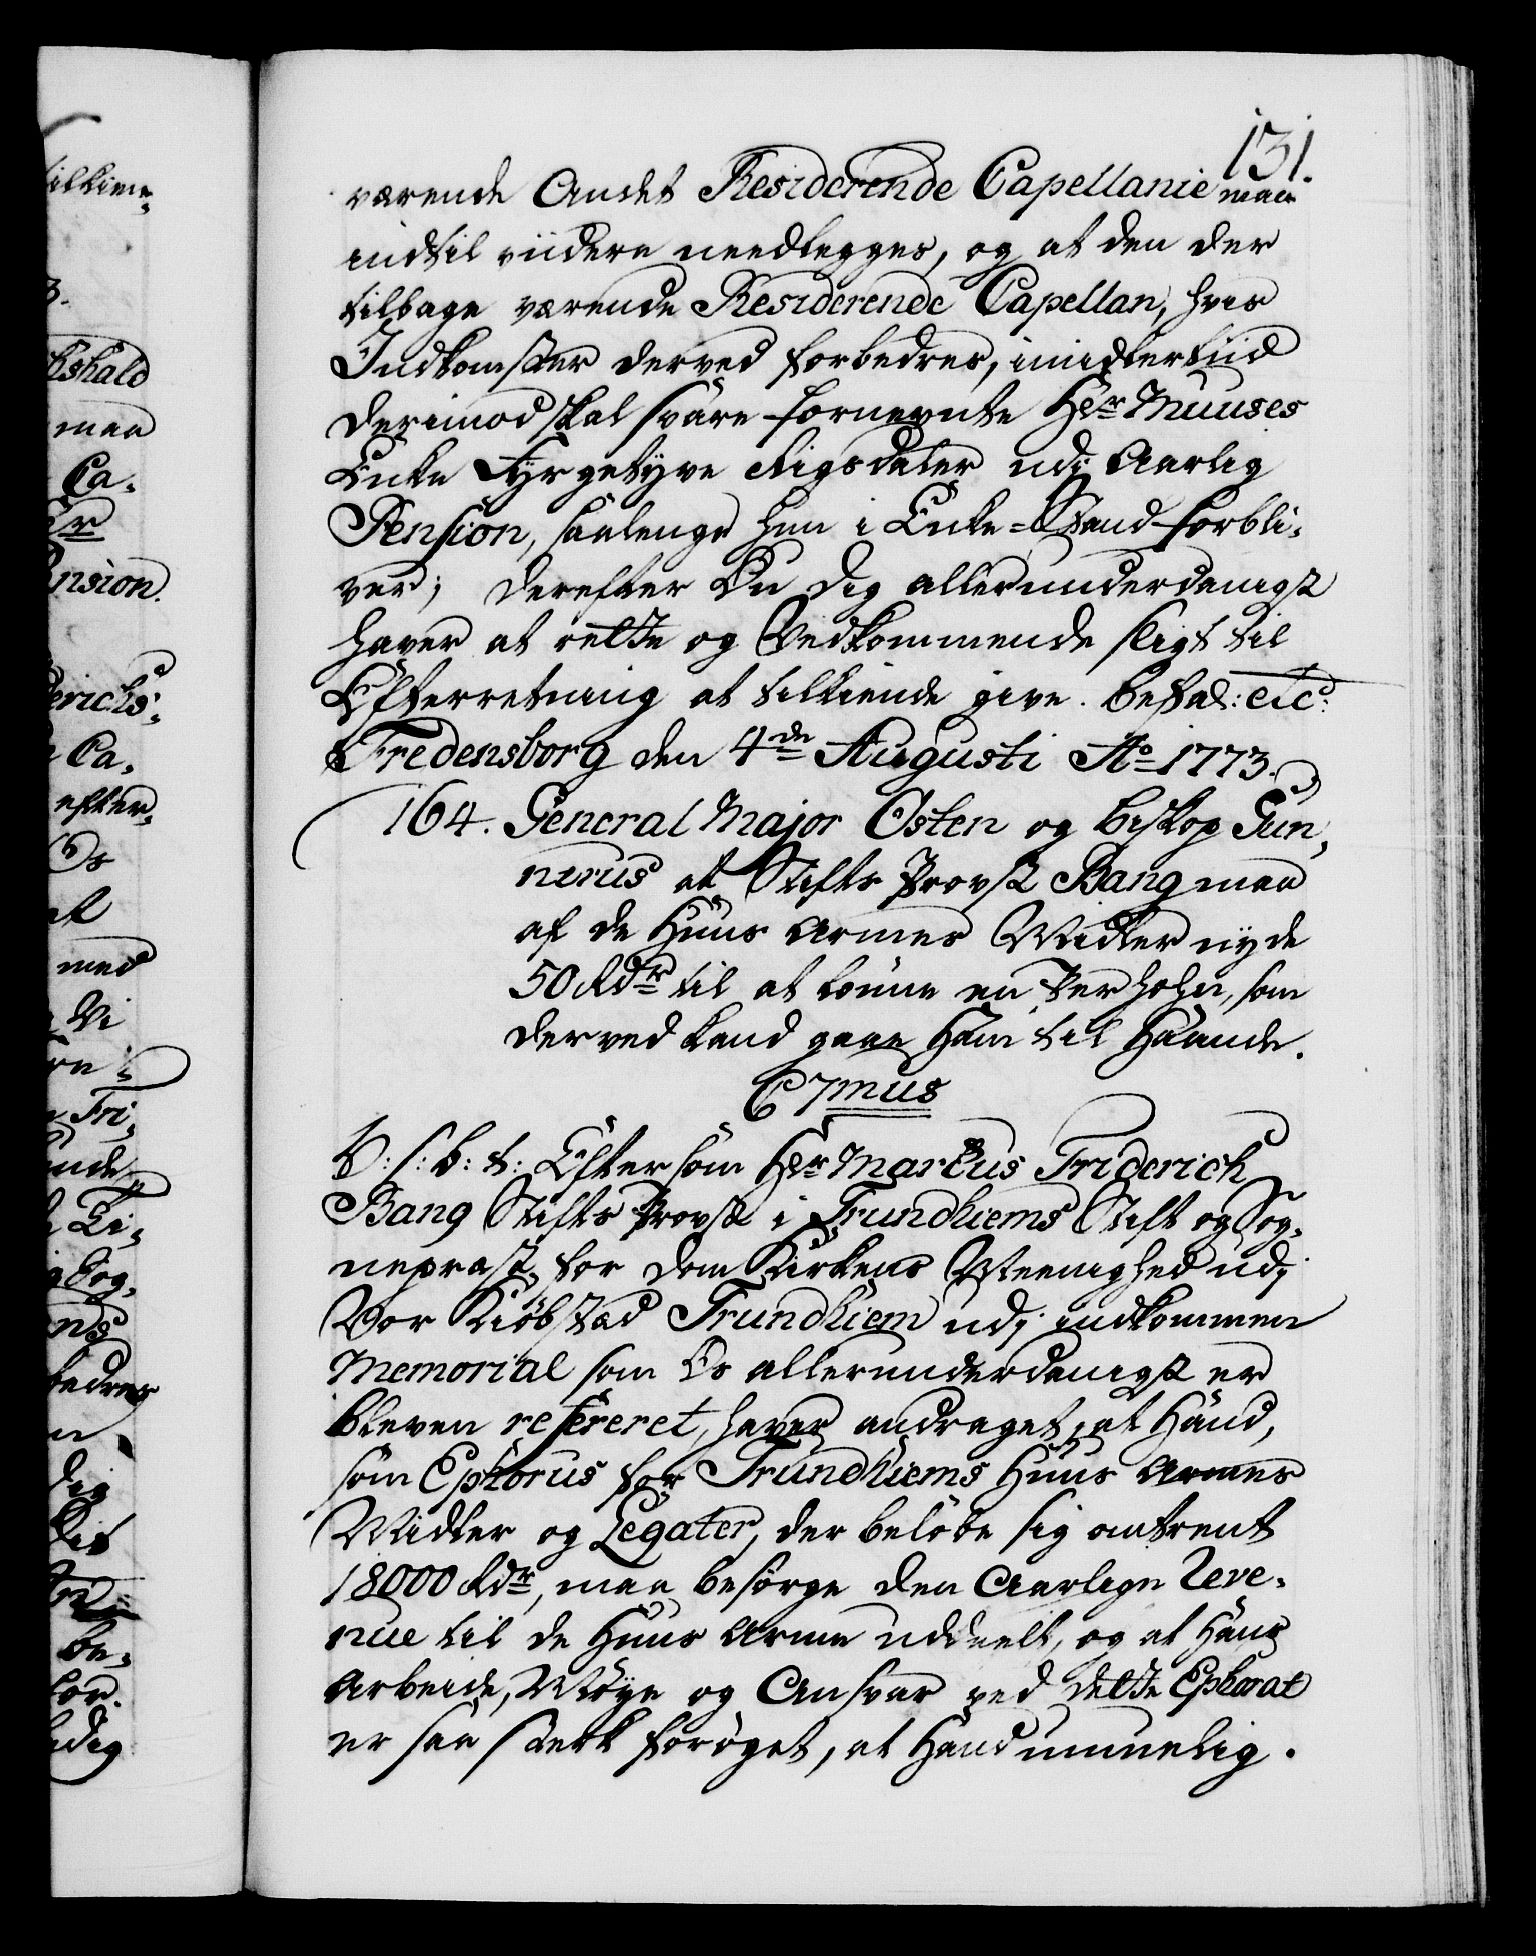 131.
værende Andet Residerende Capellanie maa
indtil viidere needlegges, og at den der
tilbage værende Residerende Capellan, hvis
Indkomster derved forbedres, imidlertiid
derimod skal svare fornevnte Hr Muuses
Enke Fyrgetyve Rigsdaler udj Aarlig
Pension, saalenge hun i Enke-Stand forbli-
ver; derefter Du dig allerunderdanigst
haver at rette og Vedkommende sligt til
Efterretning at tilkiende give. Befal: etc:
Fredensborg den 4de Augusti Ao 1773.
164. General Major Osten og Biskop Gun-
nerus at Stifts Provst Bang maa
af de Huus Armes Midler nyde
50 Rdr til at lønne en Persohn, som
derved kand gaae Ham til Haande.
C7mus
V: s: b: t: Eftersom Hr Marcus Friderich
Bang Stifts Provst i Trundhiems Stift og Sog-
nepræst for Dom Kirkens Meenighed udj
Vor Kiøbstæd Trundhiem udj indkommen
Memorial som Os allerunderdanigst er
bleven refereret, haver andraget, at Hand,
som Ephorus for Trundhiems Huus Armes
Midler og Legater, der beløbe sig omtrent
18000 Rdr, maa besørge den Aarlige Reve-
nue til de Huus Arme uddeelt, og at Hans
Arbeide, Møye og Ansvar ved dette Ephorat
er saa stærk forøget, at Hand umuelig.